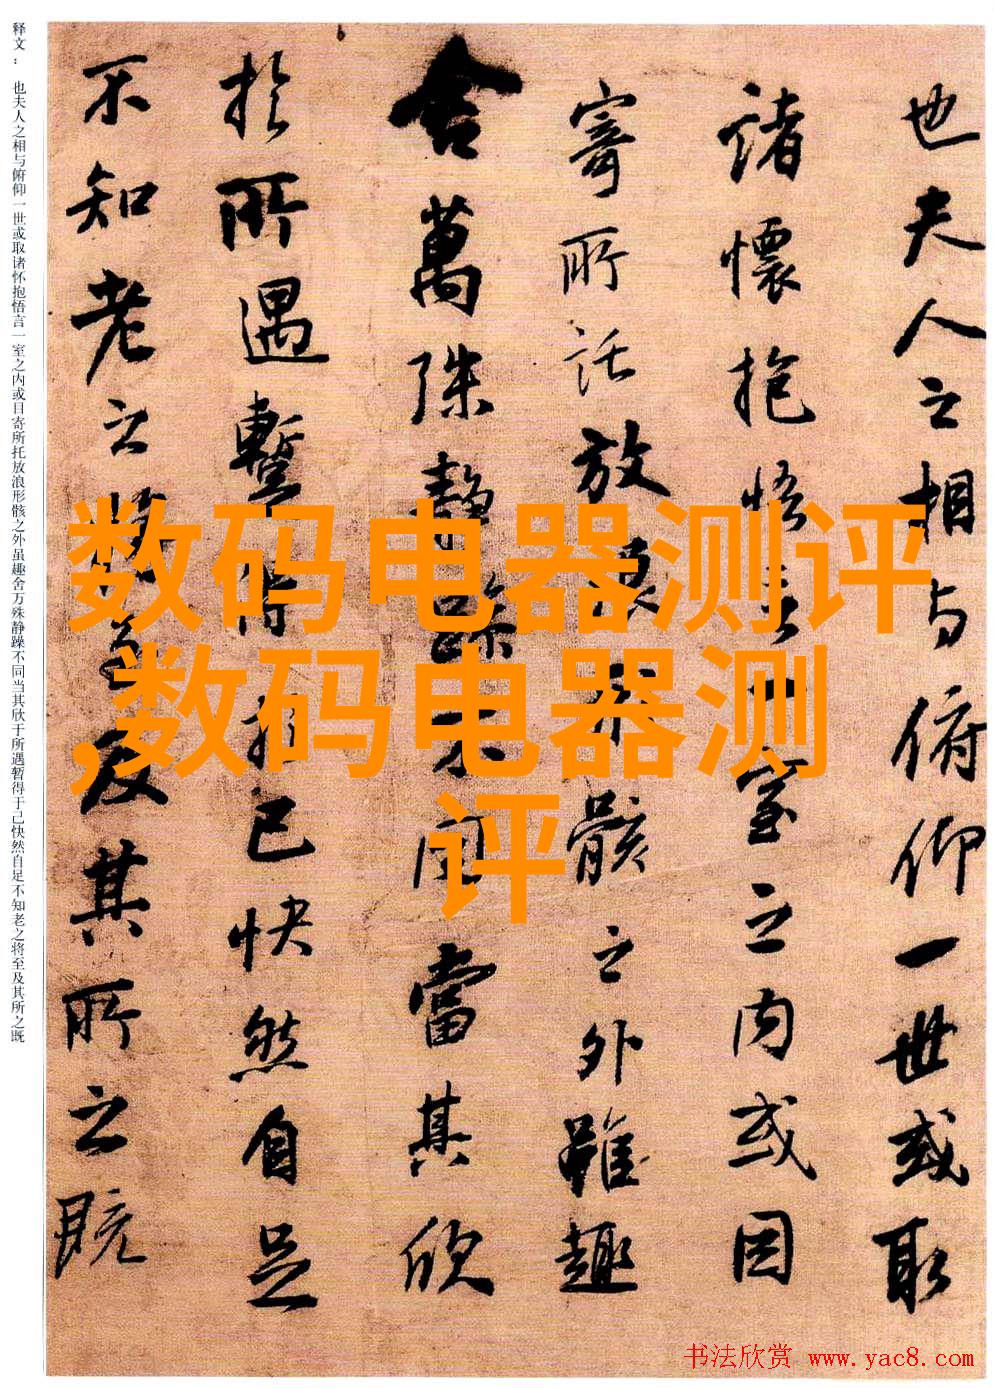 也夫人之相与俯仰一世或取
諸懷抱悟言一室之内或因
寄所託放浪形骸之外雖趣
舍萬殊静躁不同當其欣
於所遇暫得於己快然自足
不知老之將至及其所之既
释文： 也夫人之相与俯仰一世或取诸怀抱悟言一室之内或目寄所托放浪形骸之外虽趣舍万殊静躁不同当其欣于所遇暂得于己快然自足不知老之将至及其所之既
数码电器测评
,数码电器测
评
书法欣赏 www.yac8.com